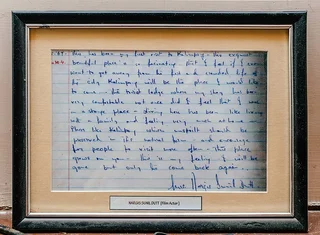 This has been my first visit to Kalimpong - this exquisitely
beautiful place is so fascinating that I feel if I ever
want to get away from the fast and crowded life of
the city Kalimpong will be the place I would like
to come - the tourist lodge where my stay has been
very comfortable not once did I feel that I was
in a strange place - staying here has been like living
with a family and feeling very much at home.
Places like Kalimpong which unspoilt should be
preserved - its natural form and encourage
for people to visit more often - this place
grows on you - this is my feeling I will be
gone but only to come back again.
Nargis Sunil Dutt
NARGIS SUNIL DUTT (Film Actor)